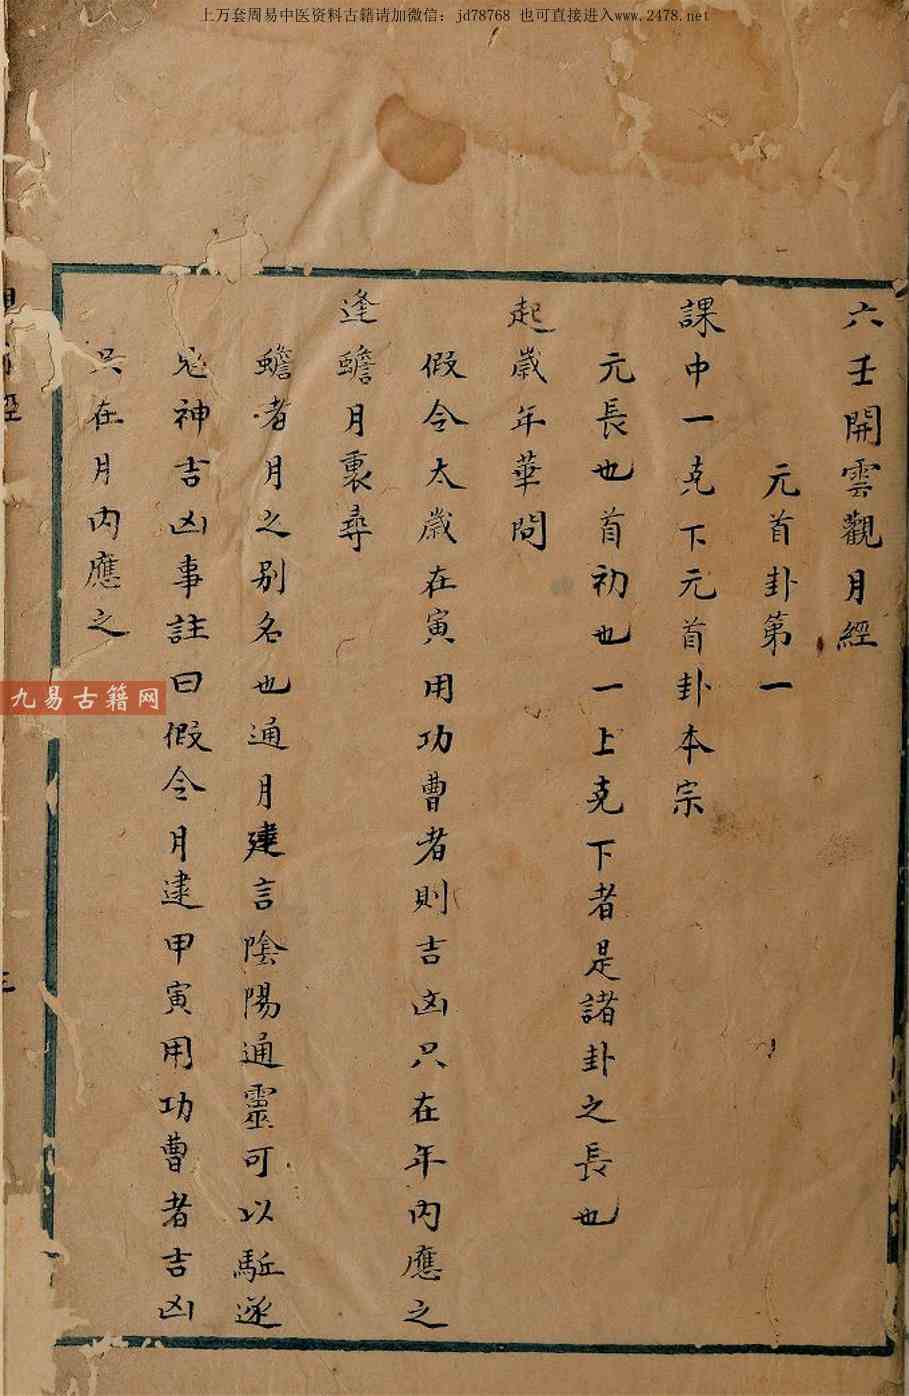 上万套周易中医资料古籍请加微信：jd78768 也可直接进入www.2478.net
六壬開雲觀月經
元首卦第一
課中一克下元首卦本宗
元長也首初也一上克下者是諸卦之長也
起歲年華問
假令太歲在寅用功曹者則吉凶只在年內應之
逢蟾月裏尋
蟾者月之别名也通月建言陰陽通靈可以駈遂
神吉凶事註曰假令月建甲寅用功曹者吉凶
只在月內應之
九易古籍网